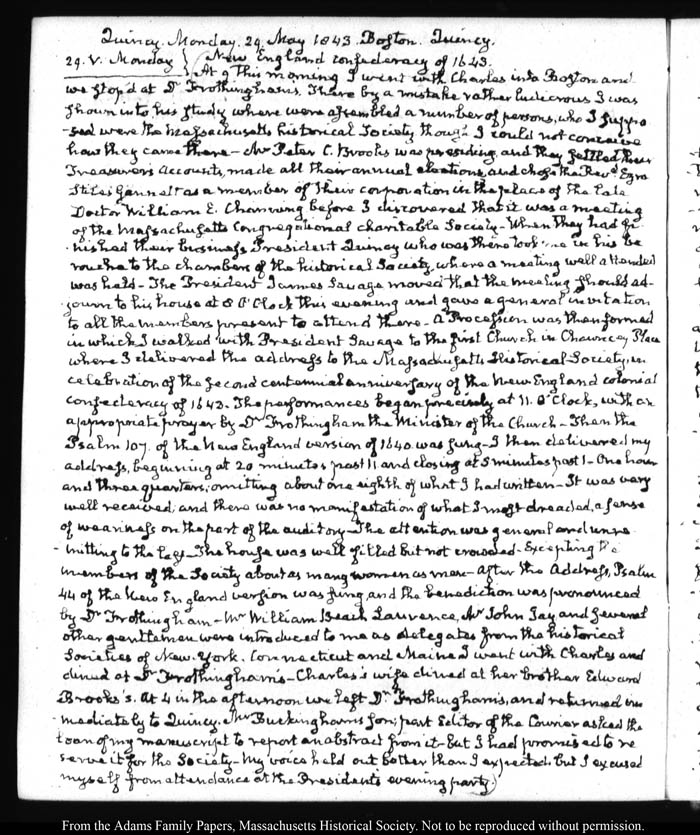 Quincy. Monday. 29. May 1843. Boston. Quincy.
29. V. Monday } New England confederacy of 1643.
At 9 This morning I went with Charles into Boston and
we stop'd at Dr Frothingham's. There by a mistake rather ludicrous I was
shown into his study where were assembled a number of persons, who I suppo-
-sed were the Massachusetts historical Society though I could not conceive
how they came there - Mr Peter C. Brooks was presiding, and they settled their
Treasurer's Accounts, made all their annual elections, and chose the Revd Ezra
Stiles Gannett as a member of their corporation in the place of the late
Doctor William E. Channing before I discovered that it was a meeting
of the Massachusetts Congregational charitable Society - When they had fi-
-nished their business President Quincy who was there took me in his ba-
rouche to the chambers of the historical Society, where a meeting well attended
was held - The President James Savage moved that the meeting should ad-
journ to his house at 8 O'Clock this evening and gave a general invitation
to all the members present to attend there - A Procession was then formed
in which I walked with President Savage to the first Church in Chauncey Place
where I delivered the address to the Massachusetts Historical Society, in
celebration of the second centennial anniversary of the New England colonial
confederacy of 1643. The performances began precisely at 11. O'Clock, with an
appropriate prayer by Dr Frothingham the Minister of the Church - Then the
Psalm 107. of the New England version of 1640. was sung - I then delivered my
address, beginning at 20 minutes past 11 and closing at 5 minutes past 1 - One hour
and three quarters; omitting about one eighth of what I had written - It was very
well received, and there was no manifestation of what I most dreaded, a sense
of weariness on the part of the auditory - The attention was general and unre-
-mitting to the last - The house was well filled but not crowded - Excepting the
members of the Society about as many women as men - After the Address, Psalm
44 of the New England version was sung, and the benediction was pronounced
by Dr Frothingham - Mr William Beach Lawrence, Mr John Jay and several
other gentlemen were introduced to me as delegates from the historical
Societies of New-York, Connecticut and Maine. I went with Charles and
dined at Dr Frothingham's - Charles's wife dined at her brother Edward
Brooks's. At 4 in the afternoon we left Dr Frothingham's, and returned im-
-mediately to Quincy. Mr Buckingham's son, part Editor of the Courier asked the
loan of my manuscript to report an abstract from it - but I had promised to re-
serve it for the Society - My voice held out better than I expected, but I excused
myself from attendance at the President's evening party.
From the Adams Family Papers, Massachusetts Historical Society. Not to be reproduced without permission.